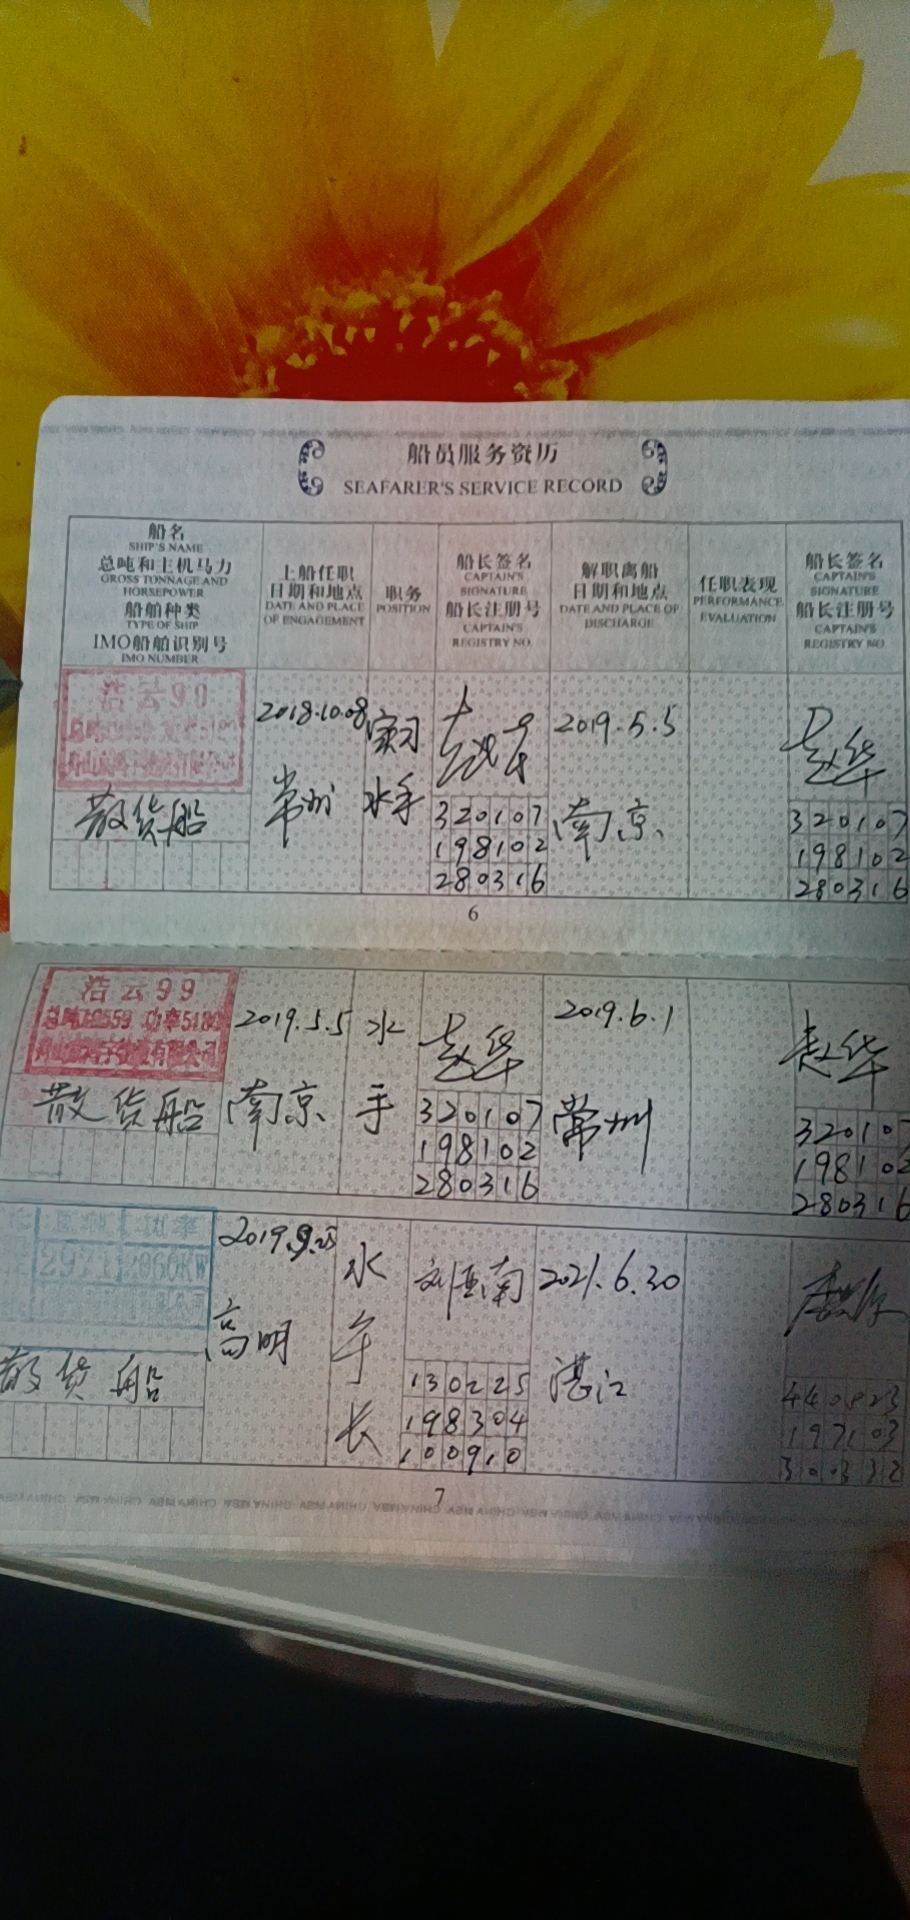 船员服务资历
SEAFARER'S SERVICE RECORD
船名
SHIP'S NAME
总吨和主机马力
GROSS TONNAGE AND
HORSEPOWER
船舶种类
TYPE OF SHIP
IMO船舶识别号
IMO NUMBER
上船任职
日期和地点
DATE AND PLACE
OF ENGAGEMENT
职务
POSITION
船长签名
CAPTAIN'S
SIGNATURE
船长注册号
CAPTAIN'S
REGISTRY NO
解职离船
日期和地点
DATE AND PLACE OF
DISCHARGE
任职表现
PERFORMANCE
EVALUATION
船长签名
CAPTAIN'S
SIGNATURE
船长注册号
CAPTAIN'S
REGISTRY NO
浩云90
散货船
2018.10.08
常州
实习
水手
320107
198102
280316
2019.5.5
南京
赵华
320107
198102
280316
6
浩云99
功率5180
散货船
2019.5.5
南京
水
手
赵华
320107
198102
280316
2019.6.1
常州
赵华
320107
198102
280316
功率
2971
2060KW
散货船
2019.9.25
高明
水
手
长
刘亚南
130225
198304
100910
2021.6.30
湛江
7
CHINA MSA